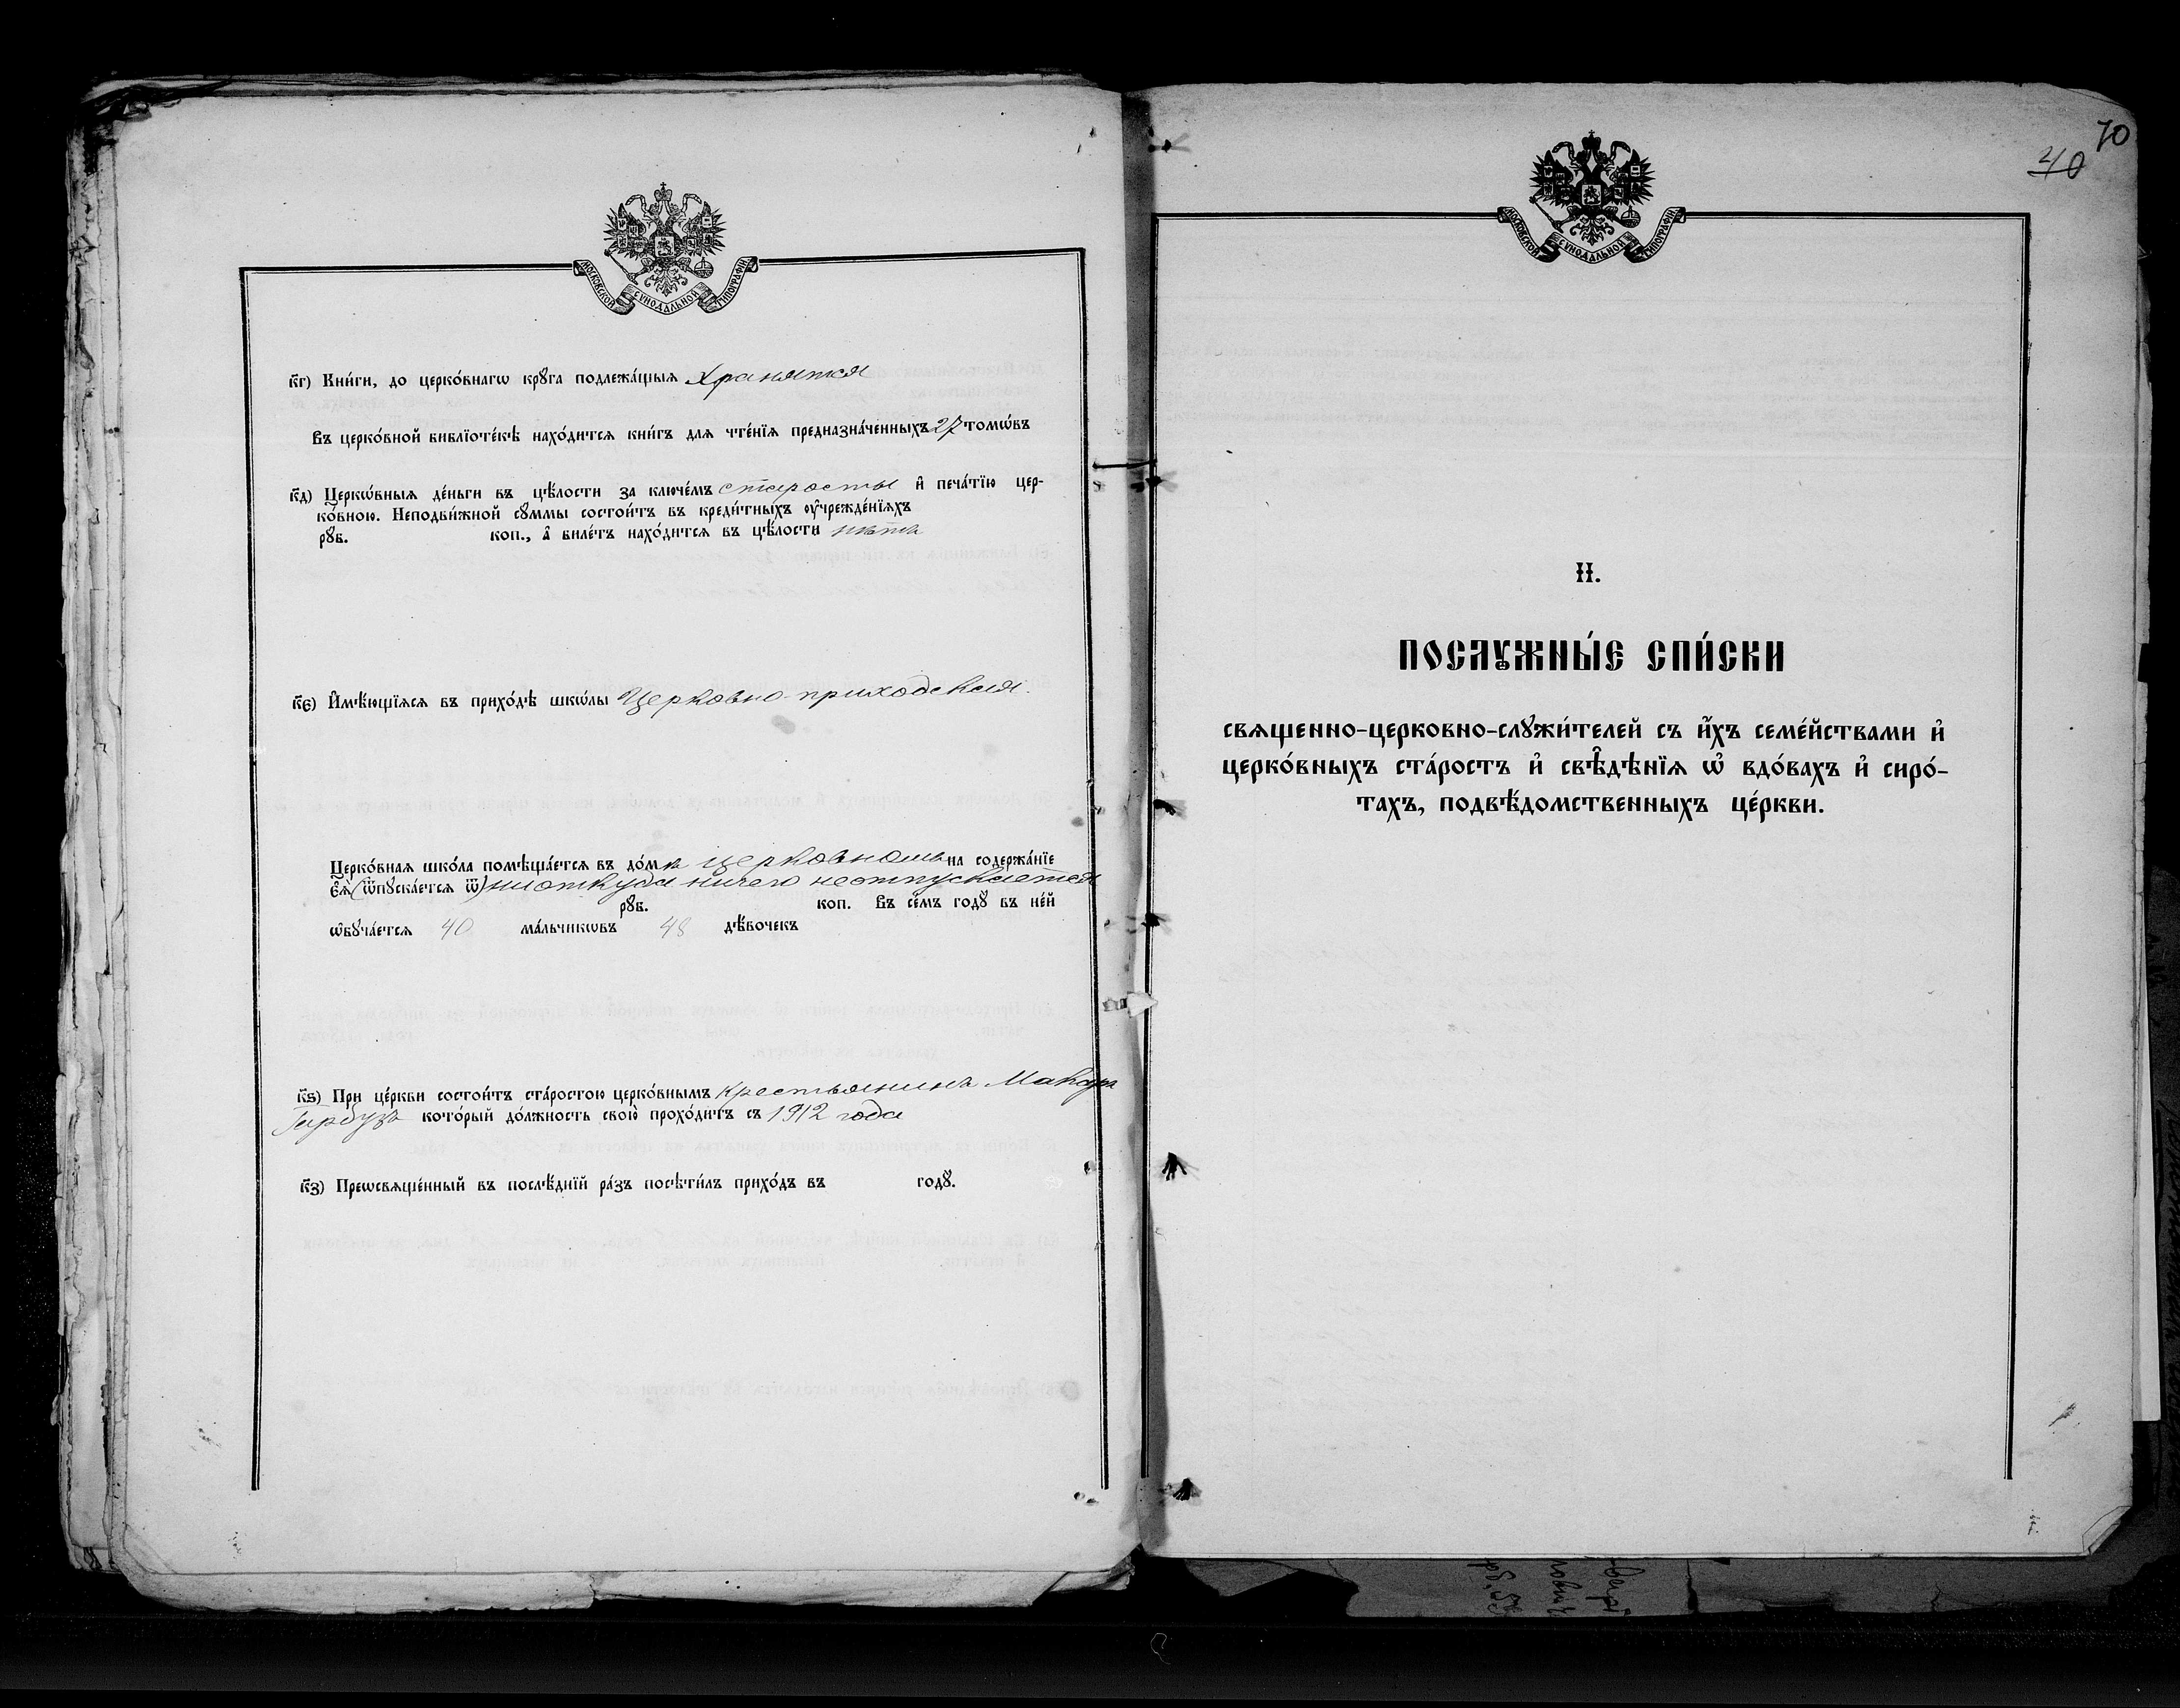 МОСКОВСКОЙ СѴНОДАЛЬНОЙ ТИПОГРАФІИ
к҃г) Кни́ги, до церко́внагѡ крꙋга подлежа́щыя хранятся
Въ церко́вной библїоте́кѣ нахо́дится кни́гъ для чте́нїя предназна́ченныхъ 27 томѡ́въ
к҃д) Церкѡ́вныя де́ньги въ цѣ́лости за ключе́мъ старосты и҆ печа́тїю цер-
ко́вною. Неподви́жной сꙋ́ммы состои́тъ въ креди́тныхъ ᲂу҆чрежде́нїяхъ
рꙋб. коп., а҆ биле́тъ нахо́дится въ цѣ́лости нѣтъ
к҃є) И҆мѣ́ющїяся въ прихо́дѣ шкѡ́лы Церковно-приходская.
Церко́вная шко́ла помѣща́ется въ до́мѣ церковномъ на содержа́нїе
є҆я̀ (ѿпꙋска́ется ѿ) ниоткуда ничего неотпускается
рꙋб. коп. Въ се́мъ годꙋ̀ въ не́й
ѡ҆бꙋча́ется 40 ма́льчикѡвъ 48 дѣ́вочекъ
к҃ѕ) При це́ркви состои́тъ ста́ростою церко́внымъ крестьянинъ Макаръ
Гарбузъ кото́рый до́лжность свою̀ прохо́дитъ съ 1912 года
к҃з) Преѡсвяще́нный въ послѣ́днїй ра́зъ посѣти́лъ прихо́дъ въ годꙋ̀.
70
40
МОСКОВСКОЙ СѴНОДАЛЬНОЙ ТИПОГРАФІИ
II.
ПОСЛꙊЖНЫ́Е СПИ́СКИ
священно-церковно-слꙋжи́телей съ и҆́хъ семе́йствами и҆
церко́вныхъ ста́ростъ и҆ свѣ́дѣнїя ѡ҆ вдо́вахъ и҆ сиро́-
тахъ, подвѣ́домственныхъ це́ркви.